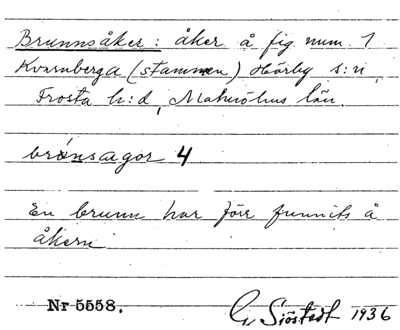 Brunnsåker: åker å fig num. 1
Kvarnberga (stammen) Hörby s:n,
Frosta h:d, Malmöhus län.
brønsagor 4
En brunn har förr funnits å
åkern
Nr 5558. G. Sjöstedt 1936